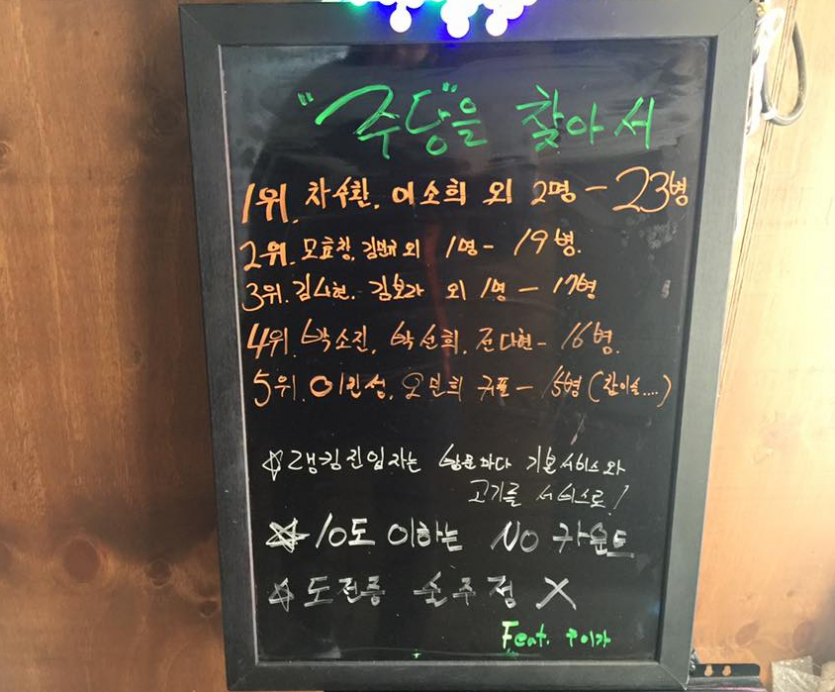 "주당"을 찾아서
1위. 차수환, 이소희 외 2명 - 23병
2위. 모효창, 외 1명 - 19병.
3위. 김보라 외 1명 - 17병
4위. 박소진, 박선희, 전다현 - 16병.
5위. 이민성, 오민희 - 15병 (참이슬....)
☆ 랭킹진입자는 방문마다 기본서비스와
고기를 서비스로!
☆ 10도 이하는 No 카운트
☆ 도전중 술주정 X
Feat. 주이가